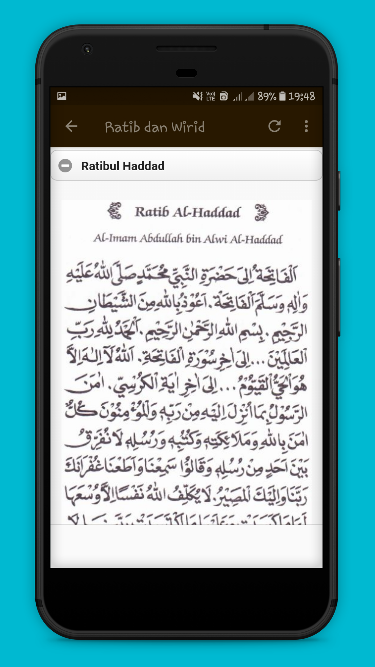 89% 19:48
Ratib dan Wirid
Ratibul Haddad
Ratib Al-Haddad
Al-Imam Abdullah bin Alwi Al-Haddad
اَلْفَاتِحَةُ إِلَى حَضْرَةِ النَّبِيِّ مُحَمَّدٍ صَلَّى اللهُ عَلَيْهِ
وَاٰلِهِ وَسَلَّمَ اَلْفَاتِحَةَ. اَعُوْذُ بِاللهِ مِنَ الشَّيْطَانِ
الرَّجِيْمِ. بِسْمِ اللهِ الرَّحْمٰنِ الرَّحِيْمِ. اَلْحَمْدُ لِلّٰهِ رَبِّ
الْعَالَمِيْنَ ... إِلَى اٰخِرِ سُوْرَةِ اَلْفَاتِحَةِ. اَللهُ لَا اِلٰهَ اِلَّا
هُوَ الْحَيُّ الْقَيُّوْمُ ... إِلَى اٰخِرِ اٰيَةِ الْكُرْسِيِّ. اٰمَنَ
الرَّسُوْلُ بِمَا اُنْزِلَ اِلَيْهِ مِنْ رَبِّهِ وَالْمُؤْمِنُوْنَ كُلٌّ
اٰمَنَ بِاللهِ وَمَلَائِكَتِهِ وَكُتُبِهِ وَرُسُلِهِ لَا نُفَرِّقُ
بَيْنَ اَحَدٍ مِنْ رُسُلِهِ وَقَالُوْا سَمِعْنَا وَاَطَعْنَا غُفْرَانَكَ
رَبَّنَا وَاِلَيْكَ الْمَصِيْرُ. لَا يُكَلِّفُ اللهُ نَفْسًا اِلَّا وُسْعَهَا